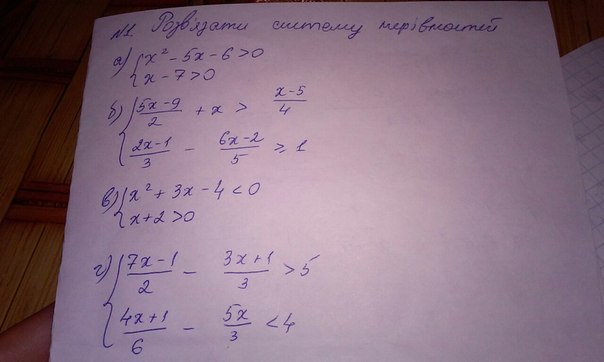 №1 Розв'язати систему нерівностей
а) { x² - 5x - 6 > 0
x - 7 > 0
б) { (5x-9)/2 + x > (x-5)/4
(2x-1)/3 - (6x-2)/5 ≥ 1
в) { x² + 3x - 4 < 0
x + 2 > 0
г) { (7x-1)/2 - (3x+1)/3 > 5
(4x+1)/6 - 5x/3 < 4